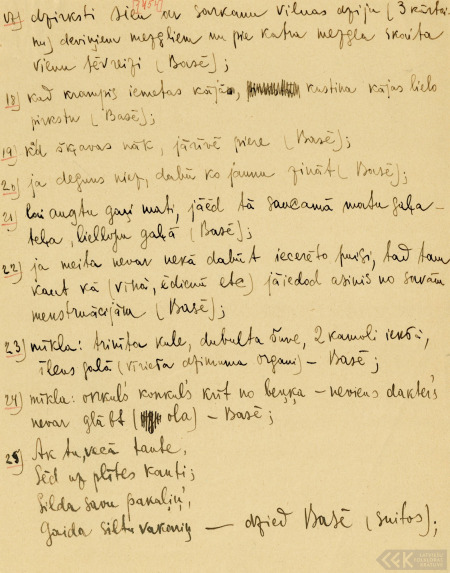 17) dzirksti sien ar sarkanu vilnas dziju (3 kārtai-
nu) deviņiem mezgliem nu pie katra mezgla skaita
vienu tēvreizi (Basē);
18) kad krampis iemetas kājās, kustina kājas lielo
pirkstu (Basē);
19) kad šķavas nāk, jārīvē piere (Basē);
20) ja deguns niez, dabū ko jaunu zināt (Basē);
21) lai augtu gaŗi mati, jāēd tā saucamā matu gaļa -
teļa, liellopu gaļā (Basē);
22) ja meita nevar nekā dabūt iecerēto puisi, tad tam
kaut kā (vīnā, ēdienā etc) jāiedod asinis no savām
menstruācijām (Basē);
23) mīkla: trinīta kule, dubulta šuve, 2 kamoli iekšā,
īlens galā (vīrieša dzimuma organi) - Basē;
24) mīkla: orkuls konkuls krīt no beņķa - neviens dakters
nevar glābt (ola) - Basē;
25) Ak tu, vecā tante,
Sēd uz plītes kanti;
Silda savu pakaļiņ',
Gaida siltu vakariņ — dzied Basē (suitos);
LATVIEŠU FOLKLORAS KRĀTUVE